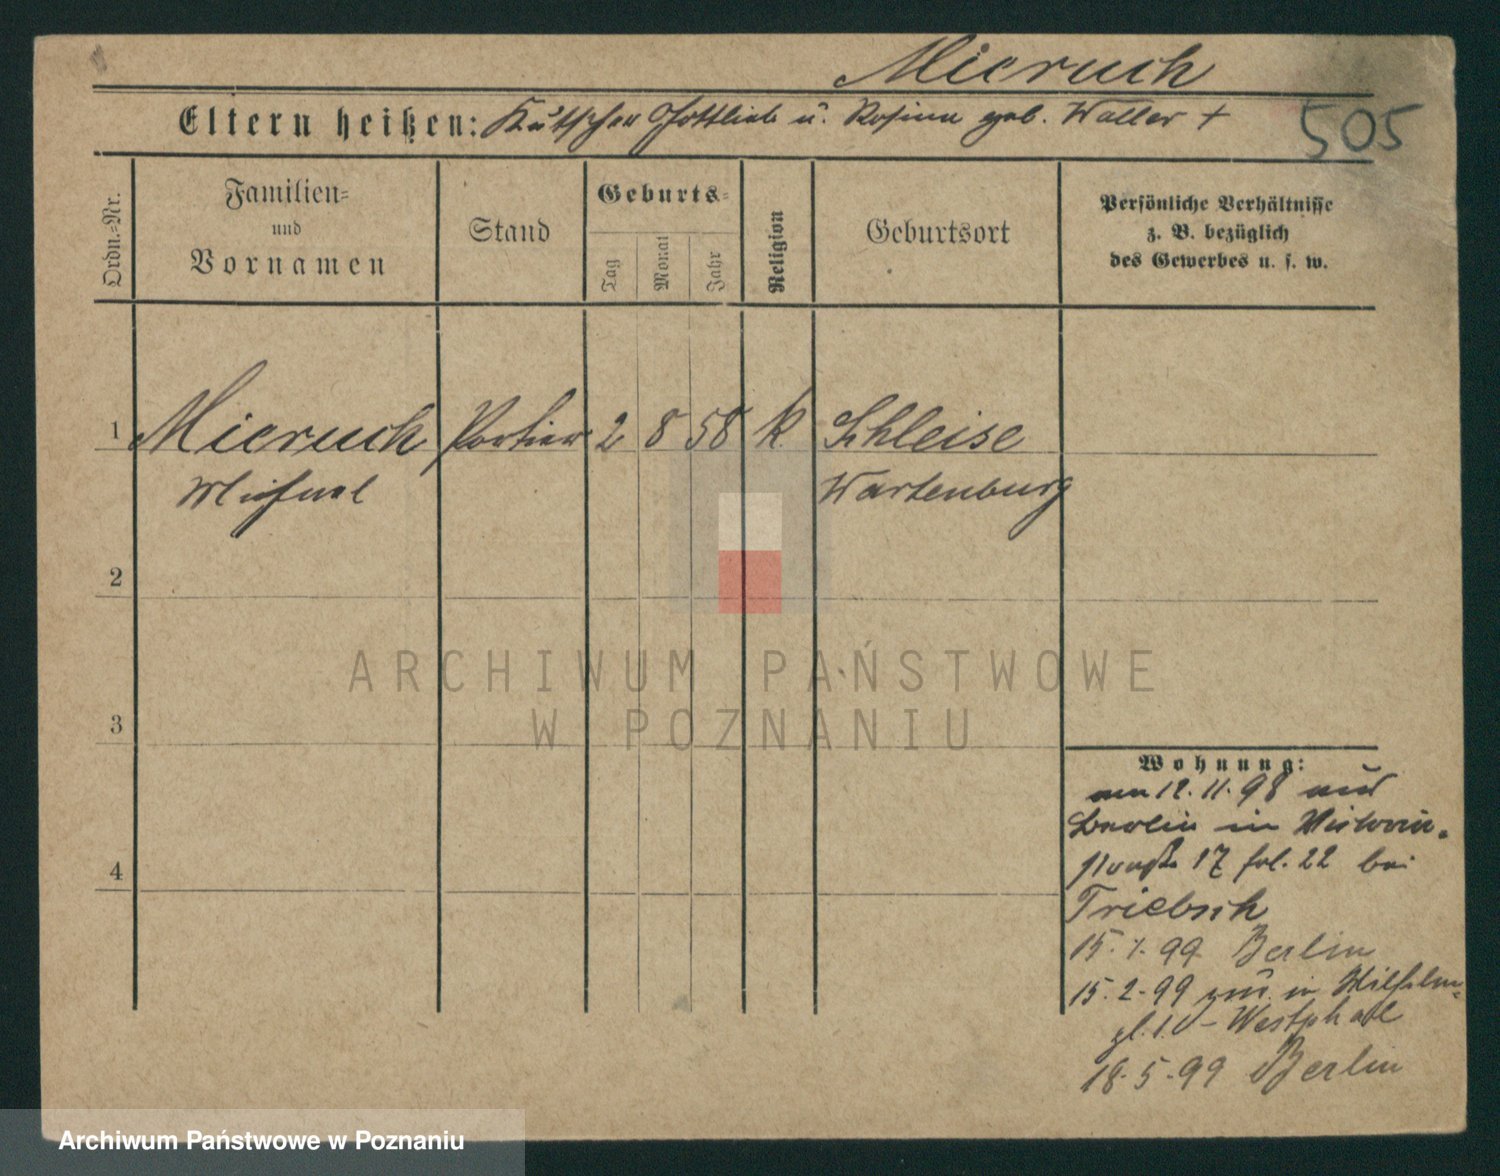 Mieruch
Eltern heißen: Kutscher Gottlieb u. Rosina geb. Waller +
505
Ordn.-Nr.
Familien-
und
Vornamen
Stand
Geburts-
Tag
Monat
Jahr
Religion
Geburtsort
Persönliche Verhältnisse
z. B. bezüglich
des Gewerbes u. s. w.
1 Mieruch Portier 2 8 58 k Schleise
Michael Wartenburg
2
3
4
ARCHIWUM PAŃSTWOWE
W POZNANIU
Wohnung:
am 12.11.98 aus
Berlin in Victoria-
straße 17 fol. 22 bei
Triebsch
15.1.99 Berlin
15.2.99 zur. in Wilhelm-
pl. 1. - Westphal
18.5.99 Berlin
Archiwum Państwowe w Poznaniu